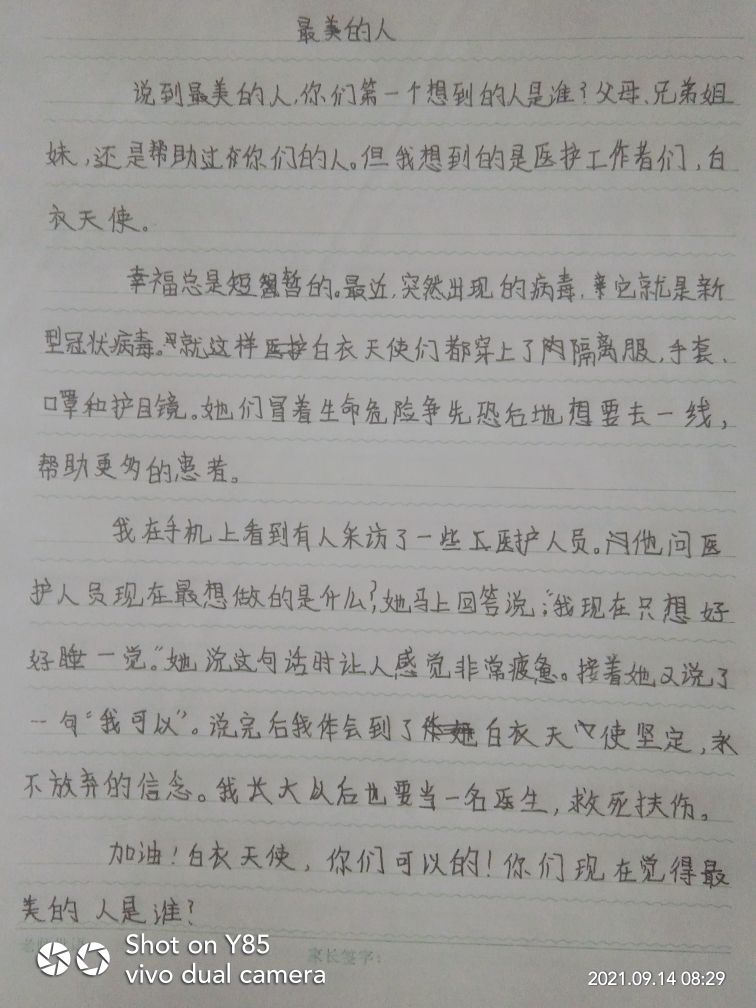 最美的人
说到最美的人,你们第一个想到的人是谁?父母、兄弟姐
妹,还是帮助过你们的人。但我想到的是医护工作者们,白
衣天使。
幸福总是短暂的。最近,突然出现的病毒,它就是新
型冠状病毒。就这样白衣天使们都穿上了隔离服,手套、
口罩和护目镜。她们冒着生命危险争先恐后地想要去一线,
帮助更多的患者。
我在手机上看到有人采访了一些医护人员。他问医
护人员现在最想做的是什么?她马上回答说:“我现在只想好
好睡一觉。”她说这句话时让人感觉非常疲惫。接着她又说了
一句“我可以”。说完后我体会到了白衣天使坚定,永
不放弃的信念。我长大以后也要当一名医生,救死扶伤。
加油!白衣天使,你们可以的!你们现在觉得最
美的人是谁?
家长签字:
Shot on Y85
vivo dual camera
2021.09.14 08:29